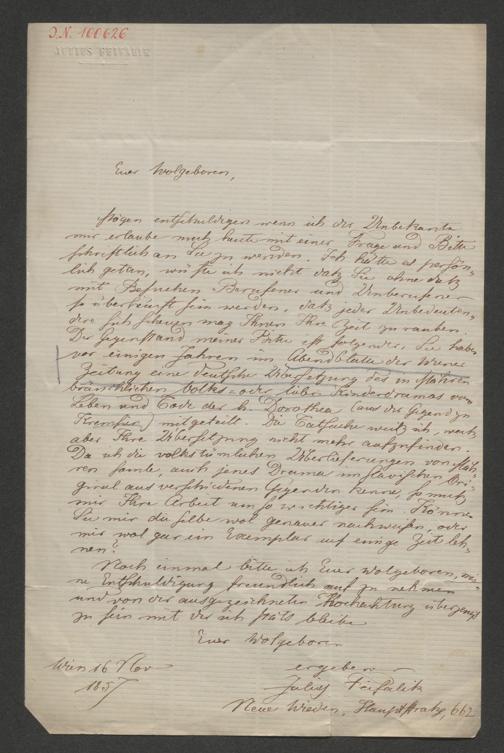 I.N. 100626
JULIUS FEIFALIK
Euer Wolgeboren,
Mögen entschuldigen wenn ich der Unbekannte
mir erlaube mich heute mit einer Frage und Bitte
schriftlich an Sie zu wenden. Ich hätte es persön-
lich getan, wüste ich nicht daß Sie ohne daß
mit Besuchen Berufener und Unberufener
so überhäuft sein werden, daß jeder Unbedeuten-
dere sich scheuen mag Ihnen Ihre Zeit zu rauben.
Der Gegenstand meiner Bitte ist folgender. Sie haben
vor einigen Jahren im Abendblatte der Wiener
Zeitung eine deutsche Übersetzung des in Mähren
bräuchlichen Volks- oder lieber Kinderdramas vom
Leben und Tode der h. Dorothea (aus der Gegend zu
Kremsier) mitgeteilt. Die Tatsache weiß ich, weiß
aber Ihre Übersetzung nicht mehr aufzufinden.
Da ich die volkstümlichen Überlieferungen von Mäh-
ren samle, auch jenes Drama im slavischen Ori-
ginal aus verschiedenen Gegenden kenne, so muß
mir Ihre Arbeit um so wichtiger sein. Können
Sie mir dieselbe wol genauer nachweisen, oder
mir wol gar ein Exemplar auf einige Zeit leh-
nen?
Noch einmal bitte ich Euer Wolgeboren, mei-
ne Entschuldigung freundlich auf zu nehmen
und von der ausgezeichneten Hochachtung überzeugt
zu sein mit der ich stäts bleibe
Euer Wolgeboren
Wien 16 Nov
1857
ergebener
Julius Feifalik
Neue Wieden, Hauptstraße, 662